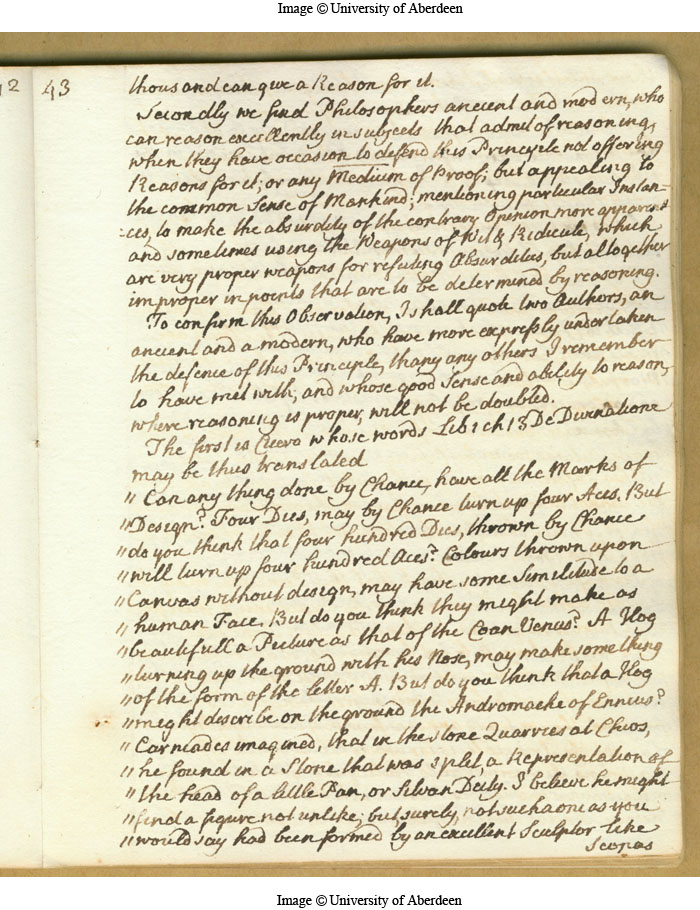 Image © University of Aberdeen
2
43
thousand can give a Reason for it.
Secondly we find Philosophers ancient and modern, who
can reason excellently in subjects that admit of reasoning,
when they have occasion to defend this Principle not offering
Reasons for it; or any Medium of Proof; but appealing to
the common Sense of Mankind; mentioning particular Instan-
-ces, to make the absurdity of the contrary Opinion more apparent
and sometimes using the Weapons of Wit & Ridicule, which
are very proper weapons for refuting Absurdities, but altogether
improper in points that are to be determined by reasoning.
To confirm this Observation, I shall quote two Authors, an
ancient and a modern, who have more expressly undertaken
the defence of this Principle, than any others I remember
to have met with, and whose good Sense and ability to reason,
where reasoning is proper, will not be doubted.
The first is Cicero whose words Lib 1 ch 13 De Divinatione
may be thus translated
" Can any thing done by Chance, have all the Marks of
" Design? Four Dies, may by Chance turn up four Aces. But
" do you think that four hundred Dies, thrown by Chance
" will turn up four hundred Aces? Colours thrown upon
" Canvas without design, may have some Similitude to a
" human Face. But do you think they might make as
" beautifull a Picture as that of the Coan Venus? A Hog
" turning up the ground with his Nose, may make something
" of the form of the letter A. But do you think that a Hog
" might describe on the ground the Andromache of Ennius?
" Carneades imagined, that in the stone Quarries at Chios,
" he found in a Stone that was split, a Representation of
" the head of a little Pan, or Silvan Deity. I believe he might
" find a figure not unlike; but surely, not such a one as you
" would say had been formed by an excellent Sculptor like
Scopas
Image © University of Aberdeen